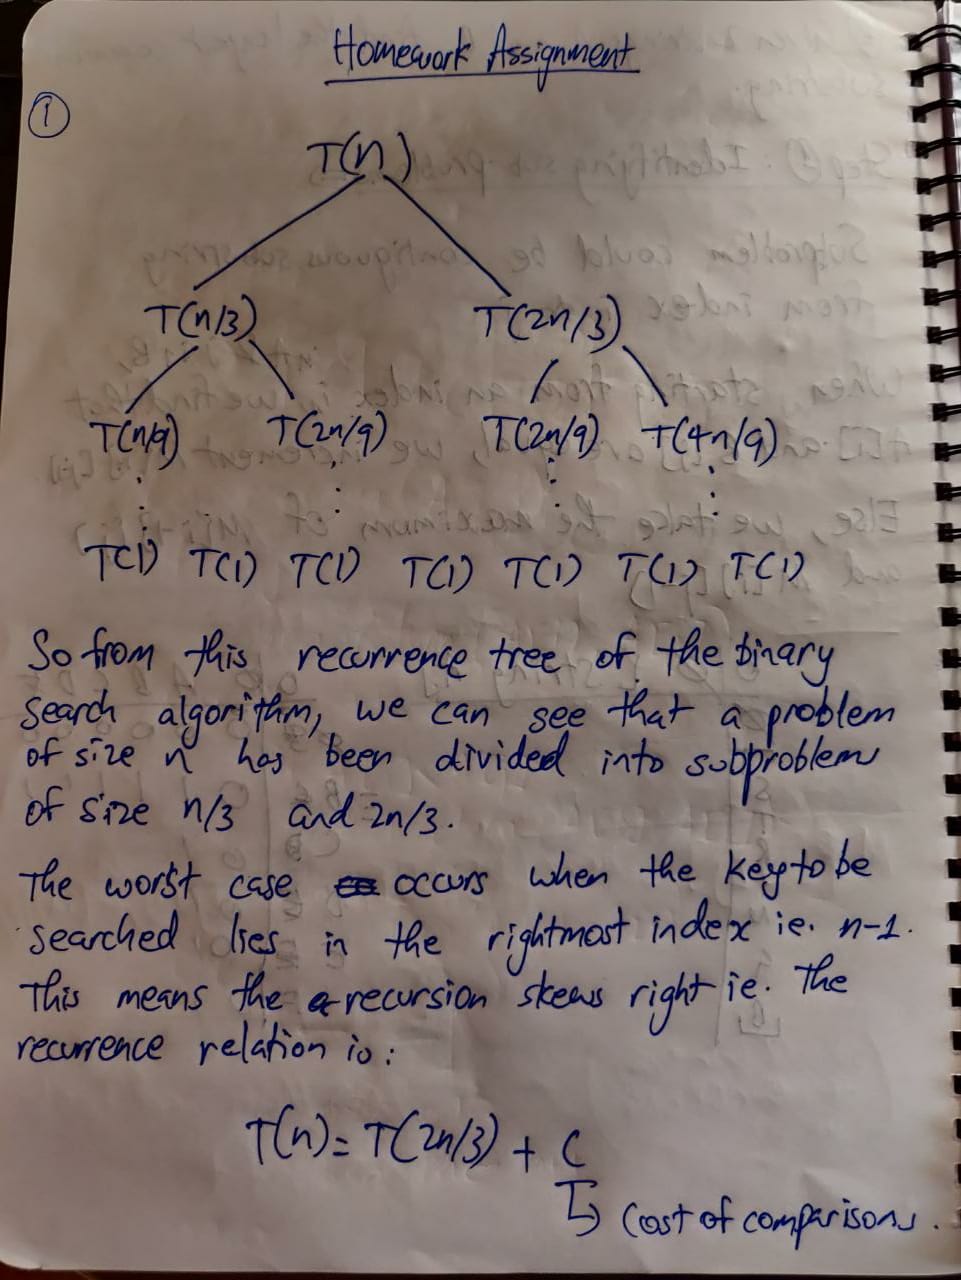 Homework Assignment
1
T(n)
T(n/3) T(2n/3)
T(n/9) T(2n/9) T(2n/9) T(4n/9)
T(1) T(1) T(1) T(1) T(1) T(1) T(1)
So from this recurrence tree of the binary
search algorithm, we can see that a problem
of size n has been divided into subproblems
of size n/3 and 2n/3.
The worst case occurs when the key to be
searched lies in the rightmost index ie. n-1.
This means the recursion skews right ie. The
recurrence relation is:
T(n) = T(2n/3) + C
↳ Cost of comparisons.